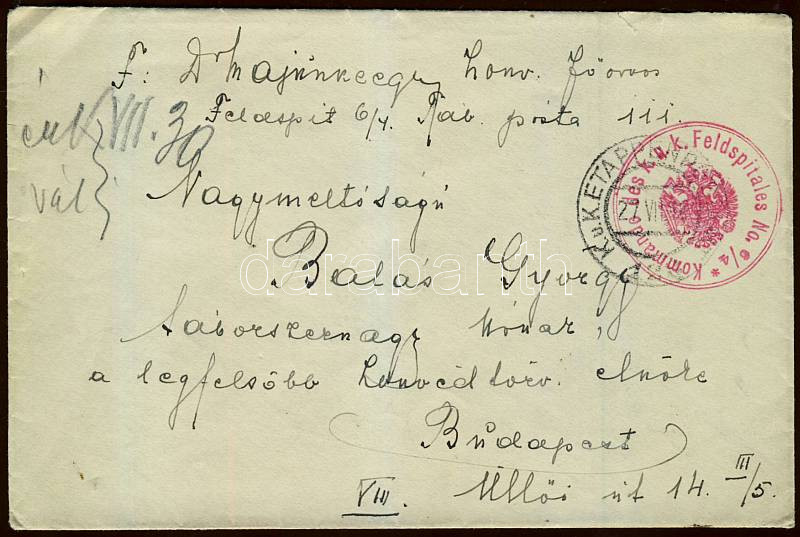 F: Dr Majunkeegy Honv. főorvos
Feldspit 6/4. Táb. posta 111.
VII. 30
vál
Nagymeltóságú
Balás György
táborszernagy
a legfelsőbb honvéd törv. elnöke
Budapest
VIII. Üllői út 14. III/5.
K.u.K. ETAPPEN
27 VI
Kommando des k.u.k. Feldspitales No. 6/4 *
darabanth